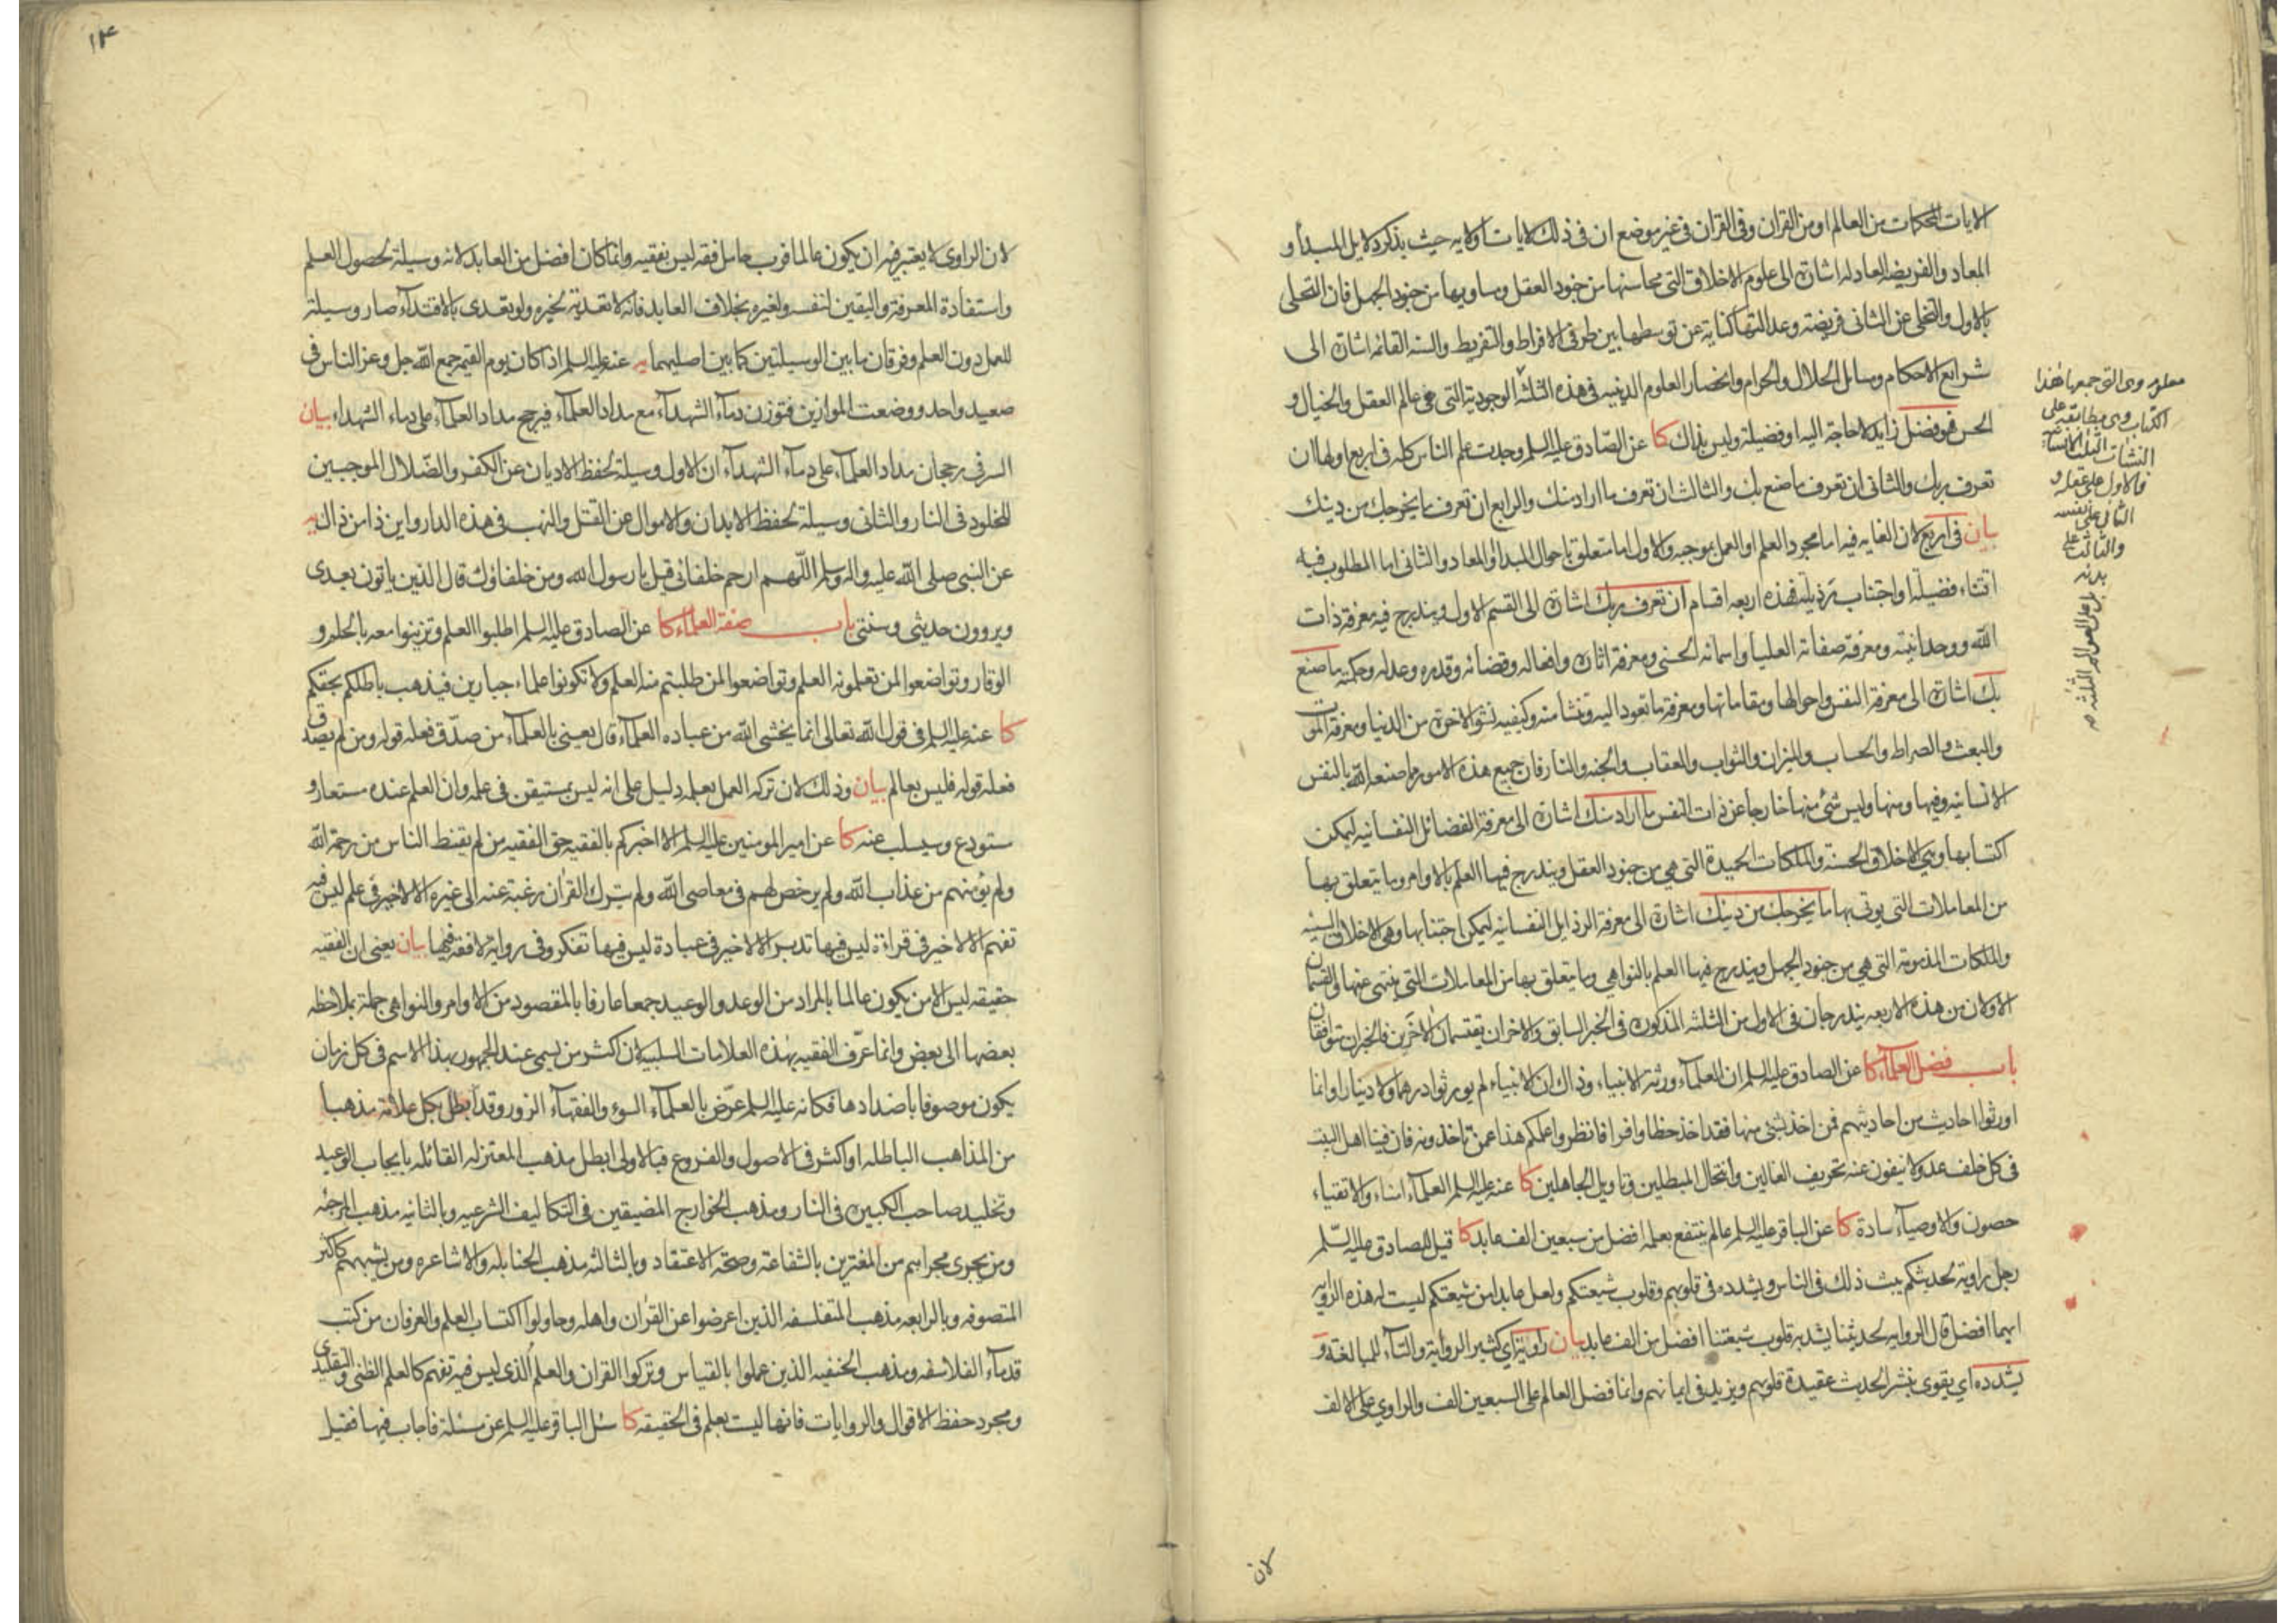 الايات المحكمات من العالم او من القرآن وفى القرآن فى غير موضع ان فى ذلك لايات او لايه حيث يذكر دلايل المبدأ و
المعاد والفريضه العادله اشارة الى علوم الاخلاق التى محاسنها من جنود العقل ومساويها من جنود الجهل فان التحلى
بالاول والتخلى عن الثانى فريضة وعدالتها كناية عن توسطها بين طرفى الافراط والتفريط والسنه القائمه اشارة الى
شرايع الاحكام ومسايل الحلال والحرام وانحصار العلوم الدينيه فى هذه الثلثه
فهو فضل زايد لا حاجة اليه او فضيلة وليس بذاك كا عن الصّادق عليه السلم وجدت علم الناس كله فى اربع اولها ان
تعرف ربك والثانى ان تعرف ما صنع بك والثالث ان تعرف ما اراد منك والرابع ان تعرف ما يخرجك من دينك
بيان فى اربع لان الغايه فيه اما مجرد العلم او العمل بموجبه والاول اما متعلق باحوال المبدأ والمعاد والثانى اما المطلوب فيه
اقتناء فضيلة او اجتناب رذيلة فهذه اربعه اقسام ان تعرف ربك اشارة الى القسم الاول ويندرج فيه معرفة ذات
الله ووحدانيته ومعرفة صفاته العليا واسمائه الحسنى ومعرفة اثاره وافعاله وقضائه وقدره وعدله وحكمته ما صنع
بك اشارة الى معرفة النفس واحوالها ومقاماتها ومعرفة ما تعود اليه وتنشأ منه وكيفيه نشو الاخرة من الدنيا ومعرفة الموت
والبعث والصراط والحساب والميزان والثواب والعقاب والجنه والنار فان جميع هذه الامور مما صنعه الله بالنفس
الانسانيه وفيها ومنها وليس شئ منها خارجا عن ذات النفس ما اراد منك اشارة الى معرفة الفضائل النفسانيه ليمكن
اكتسابها وهى الاخلاق الحسنة والملكات الحميدة التى هى من جنود العقل ويندرج فيها العلم بالاوامر وما يتعلق بها
من المعاملات التى يوتى بها ما يخرجك من دينك اشارة الى معرفة الرذايل النفسانيه ليمكن اجتنابها وهى الاخلاق السيئه
والملكات المذمومة التى هى من جنود الجهل ويندرج فيها العلم بالنواهى وما يتعلق بها من المعاملات التى ينتهى عنها والقسمان
الاولان من هذه الاربعه يندرجان فى الاول من الثلثه المذكورة فى الخبر السابق والاخران يقتسمان الاخرين فالخبران متوافقان
باب فضل العلمآء كا عن الصادق عليه السلم ان العلمآء ورثة الانبياء وذاك ان الانبياء لم يورثوا درهما ولا دينارا وانما
اورثوا احاديث من احاديثهم فمن اخذ بشئ منها فقد اخذ حظا وافرا فانظروا علمكم هذا عمن تاخذونه فان فينا اهل البيت
فى كل خلف عدولا ينفون عنه تحريف الغالين وانتحال المبطلين وتاويل الجاهلين كا عنه عليه السلم العلمآء امناء والاتقياء
حصون والاوصيآء سادة كا عن الباقر عليه السلم عالم ينتفع بعلمه افضل من سبعين الف عابد كا قيل للصادق عليه السّلم
رجل راوية لحديثكم يبث ذلك فى الناس ويشدده فى قلوبهم وقلوب شيعتكم ولعل عابدا من شيعتكم ليست له هذه الروايه
ايهما افضل قال الروايه لحديثنا يشد به قلوب شيعتنا افضل من الف عابد بيان راوية اى كثير الرواية والتآء للمبالغة و
يشدده اى يقوى بنشر الحديث عقيدة قلوبهم ويزيد فى ايمانهم وانما فضل العالم على السبعين الف والراوى على الالف
معلومه وهى التى جمعها هذا
الكتاب وهى مطابقه على
النشات الثلث
فالاول على عقله و
الثانى على نفسه
والثالث على
بدنه
بل على العوالم الثلثه
لان
١٤
لان الراوى لا يعتبر فيه ان يكون عالما فرب حامل فقه ليس بفقيه وانما كان افضل من العابد لانه وسيلة لحصول العلم
واستفادة المعرفة واليقين لنفسه ولغيره بخلاف العابد فانه لا تعدية لخيره ولو تعدى بالاقتدآء صار وسيلة
للعمل دون العلم وفرقان ما بين الوسيلتين كما بين اصليهما يه عنه عليه السلم اذا كان يوم القيمه جمع الله جل وعز الناس فى
صعيد واحد ووضعت الموازين فتوزن دمآء الشهدآء مع مداد العلمآء فيرجح مداد العلمآء على دماء الشهداء بيان
السر فى رجحان مداد العلمآء على دمآء الشهدآء ان الاول وسيلة لحفظ الاديان عن الكفر والضّلال الموجبين
للخلود فى النار والثانى وسيلة لحفظ الابدان والاموال عن القتل والنهب فى هذه الدار واين ذا من ذاك يه
عن النبى صلى الله عليه واله وسلم اللّهم ارحم خلفائى قيل يا رسول الله ومن خلفاؤك قال الذين ياتون بعدى
ويروون حديثى وسنتى باب صفة العلماء كا عن الصادق عليه السلم اطلبوا العلم وتزينوا معه بالحلم و
الوقار وتواضعوا لمن تعلمونه العلم وتواضعوا لمن طلبتم منه العلم ولا تكونوا علماء جبارين فيذهب باطلكم بحقكم
كا عنه عليه السلم فى قول الله تعالى انما يخشى الله من عباده العلمآء قال يعنى بالعلمآء من صدّق فعله قوله ومن لم يصدق
فعله قوله فليس بعالم بيان وذلك لان تركه العمل بعلمه دليل على انه ليس بمستيقن فى علمه وان العلم عنده مستعار و
مستودع وسيسلب عنه كا عن امير المومنين عليه السلم الا اخبركم بالفقيه حق الفقيه من لم يقنط الناس من رحمة الله
ولم يؤمنهم من عذاب الله ولم يرخص لهم فى معاصى الله ولم يترك القرآن رغبة عنه الى غيره الا لا خير فى علم ليس فيه
تفهم الا لا خير فى قراءة ليس فيها تدبر الا لا خير فى عبادة ليس فيها تفكر وفى رواية لا فقه فيها بيان يعنى ان الفقيه
حقيقه ليس الا من يكون عالما بالمراد من الوعد والوعيد جمعا عارفا بالمقصود من الاوامر والنواهى جملة بملاحظه
بعضها الى بعض وانما عرّف الفقيه بهذه العلامات السلبيه لان اكثر من يسمى عند الجمهور بهذا الاسم فى كل زمان
يكون موصوفا باضدادها فكانه عليه السلم عرّض بالعلمآء السوء والفقهآء الزور وقد ابطل بكل علامة مذهبا
من المذاهب الباطله او اكثر فى الاصول والفروع فبالاولى ابطل مذهب المعتزله القائله بايجاب الوعيد
وتخليد صاحب الكبيره فى النار ومذهب الخوارج المضيقين فى التكاليف الشرعيه وبالثانيه مذهب المرجئه
ومن يجرى مجراهم من المغترين بالشفاعة وصحة الاعتقاد وبالثالثه مذهب الحنابله والاشاعره ومن يشبههم كاكثر
المتصوفه وبالرابعه مذهب المتفلسفه الذين اعرضوا عن القرآن واهله وحاولوا اكتساب العلم والعرفان من كتب
قدمآء الفلاسفه ومذهب الحنفيه الذين عملوا بالقياس وتركوا القران والعلم الذى ليس فيه تفهم كالعلم الظنى والتقليدى
ومجرد حفظ الاقوال والروايات فانها ليست بعلم فى الحقيقه كا سئل الباقر عليه السلم عن مسئلة فاجاب فيها فقيل